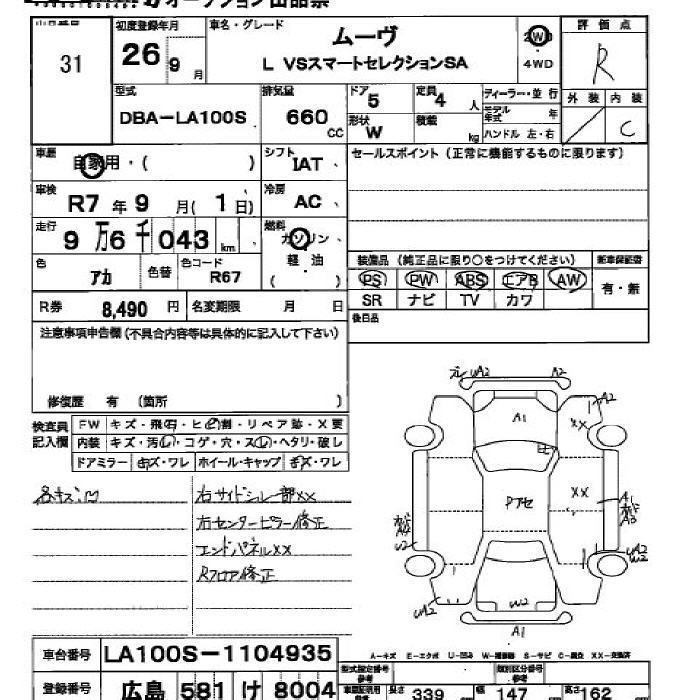 オークション出品票
31
初度登録年月
26 9 月
車名・グレード
ムーヴ
L VSスマートセレクションSA
2WD
4WD
評価点
R
外装 内装
C
型式
DBA-LA100S
排気量
660 CC
ドア 5
定員 4 人
形状 W
積載 kg
ディーラー・並行
モデル年式 年
ハンドル 左・右
車歴
自家用・( )
シフト
IAT
セールスポイント(正常に機能するものに限ります)
車検
R7 年 9 月( 1 日)
冷房
AC
走行
9 万 6 千 043 km
燃料
ガソリン・
軽油
( )
色
アカ
色替
色コード
R67
装備品 (純正品に限り○をつけてください)
新車保証書
PS PW ABS エアB AW
SR ナビ TV カワ
有・無
R券 8,490 円
名変期限 月 日
後日品
注意事項申告欄(不具合内容等は具体的に記入して下さい)
修復歴 有 (箇所 )
検査員記入欄
FW キズ・飛石・ヒビ割・リペア跡・X要
内装 キズ・汚レ・コゲ・穴・スレ・ヘタリ・破レ
ドアミラー キズ・ワレ ホイール・キャップ キズ・ワレ
各キズ凹
右サイドシル部XX
右センターピラー修正
エンドパネルXX
Rフロア修正
A2
A2
A1
XX
ヒビ
XX
Pアセ
A1
A3
W2
A2
W2
W2
A1
A-キズ E-エクボ U-凹み W-補修跡 S-サビ C-腐食 XX-交換済
車台番号
LA100S-1104935
登録番号
広島 581 け 8004
型式指定番号
参考
類別区分番号
参考
長さ 339 幅 147 高さ 162